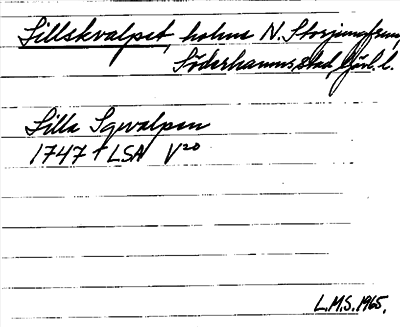 Lillskvalpet, holme N. Storjungfrun,
Söderhamns stad, Gävl. l.
Lilla Sqvalpen
1747 † LSA V20
L.M.S. 1965.